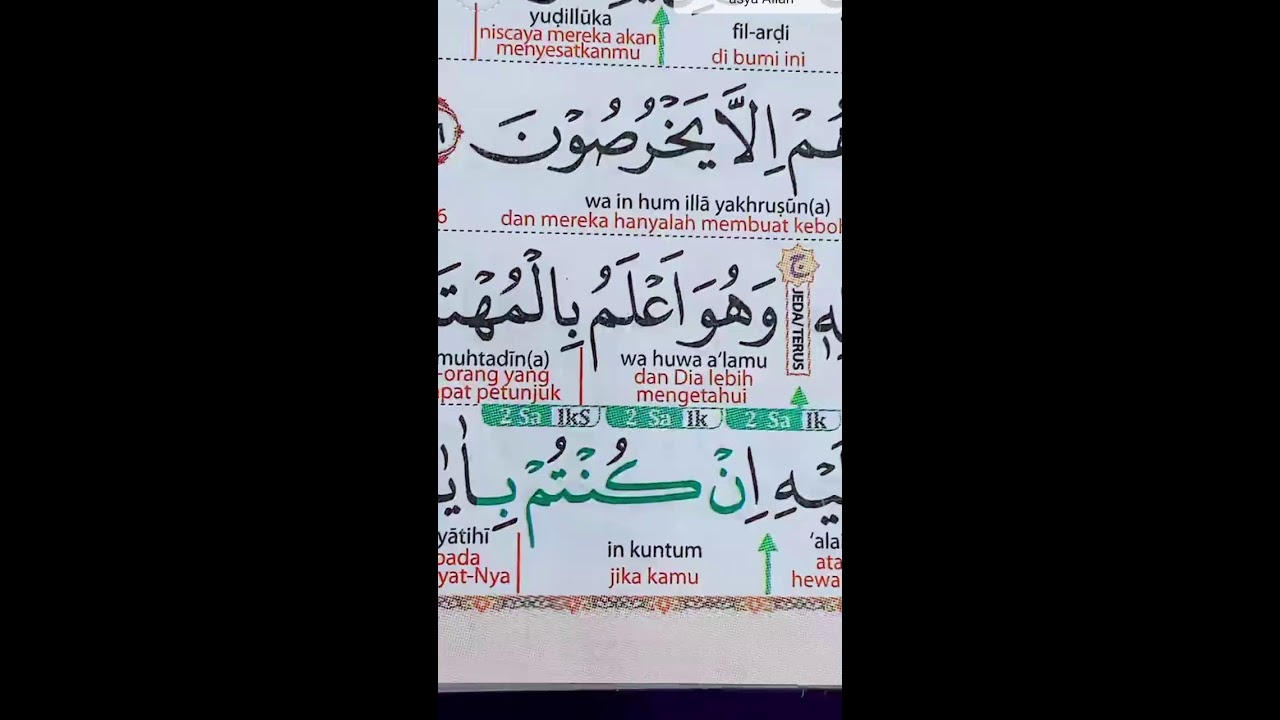 asya Allah
yuḍillūka
fil-arḍi
niscaya mereka akan
menyesatkanmu
di bumi ini
هُمْ اِلَّا يَخْرُصُوْنَ
wa in hum illā yakhruṣūn(a)
6
dan mereka hanyalah membuat keboh
ج
JEDA/TERUS
وَهُوَ اَعْلَمُ بِالْمُهْتَ
muhtadīn(a)
wa huwa a‘lamu
-orang yang
pat petunjuk
dan Dia lebih
mengetahui
2 Sa IkS 2 Sa Ik 2 Sa Ik
لَيْهِ اِنْ كُنْتُمْ بِاٰيٰ
yātihī
in kuntum
‘ala
pada
yat-Nya
jika kamu
ata
hewa